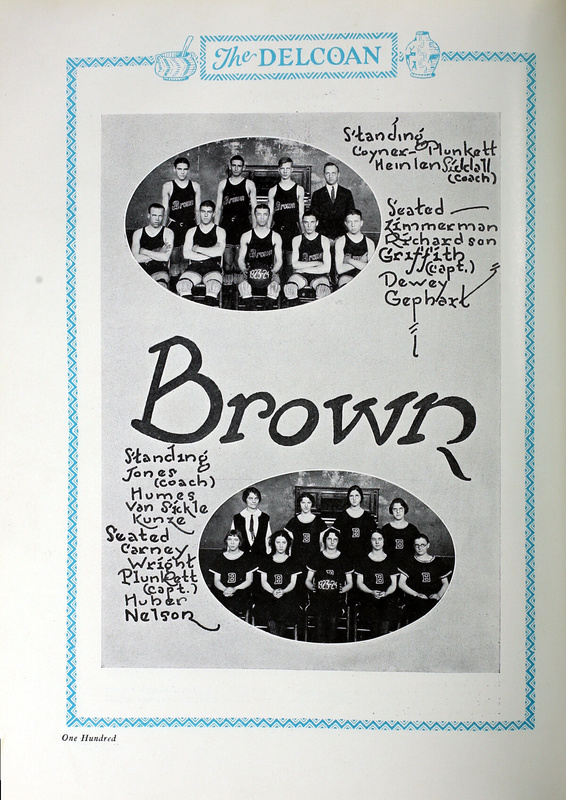 The DELCOAN
Standing
Coyner- Plunkett
Heinlen Sickall
(coach)
Seated
Zimmerman
Richardson
Griffith
(capt.)
Dewey
Gephart
Brown
Brown
Brown
Brown
Brown
1923-24
Brown
Standing
Jones
(coach)
Humes
Van Sickle
Kunze
Seated
Carney
Wright
Plunkett
(capt.)
Huber
Nelson
B
B
B
B
B
B
B
1923-24
One Hundred